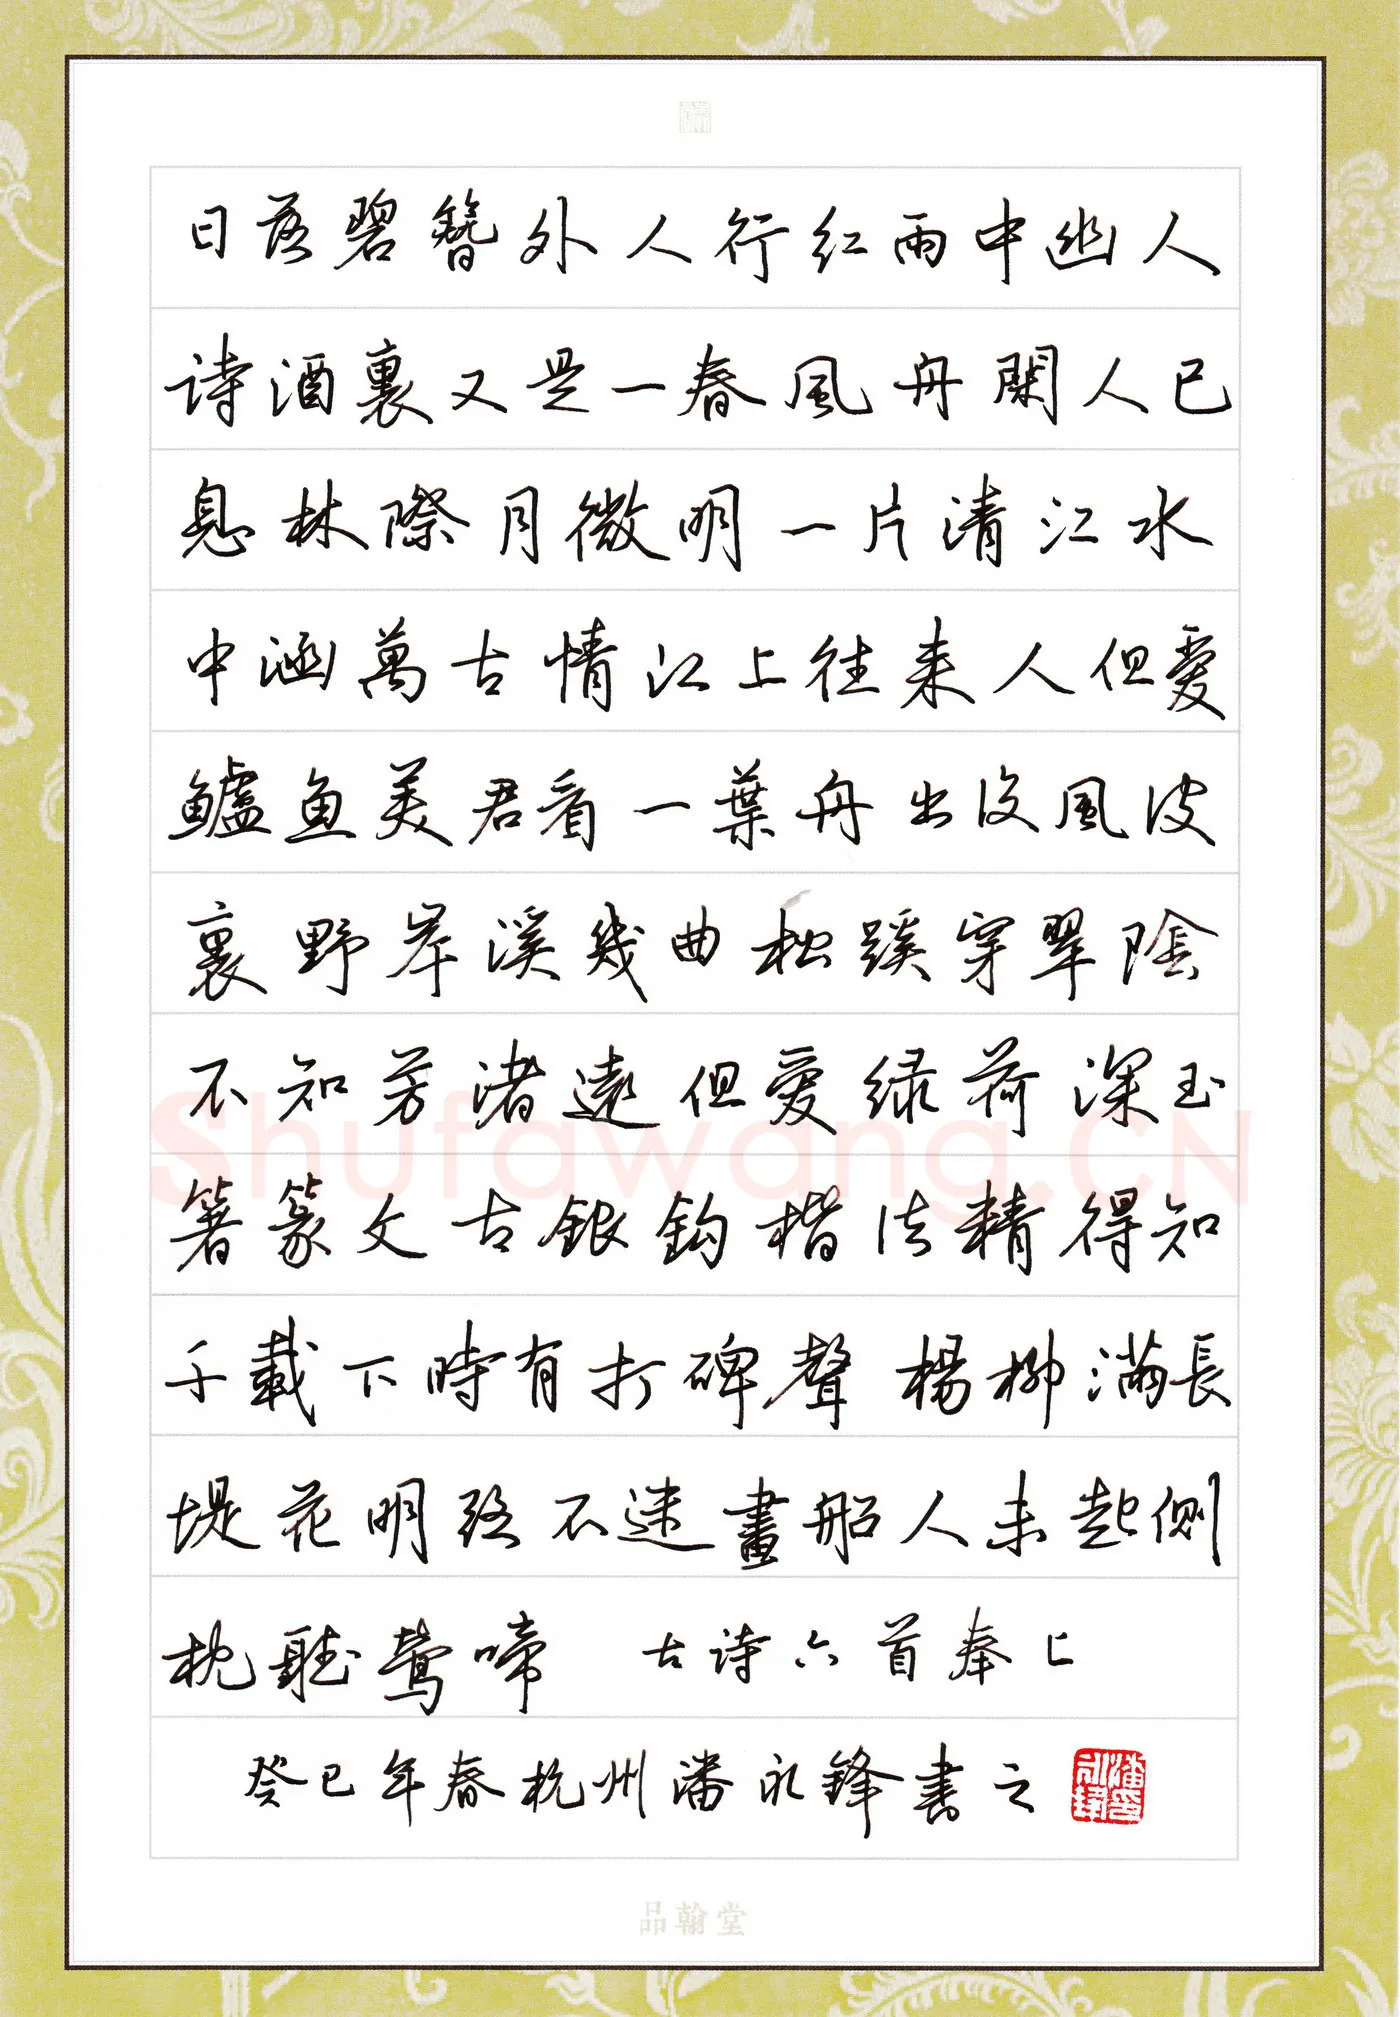 日落碧簪外人行红雨中幽人
诗酒裏又是一春風舟閑人已
息林際月微明一片清江水
中涵萬古情江上往来人但愛
鱸鱼美君看一葉舟出没風波
裏野岸溪幾曲松蹊穿翠陰
不知芳渚遠但愛緑荷深玉
箸篆文古銀鈎楷法精得知
千載下時有打碑聲楊柳满長
堤花明路不迷畫船人未起側
枕聽鶯啼 古诗六首奉上
癸巳年春杭州潘永鋒書之
品翰堂
Shufawang.CN